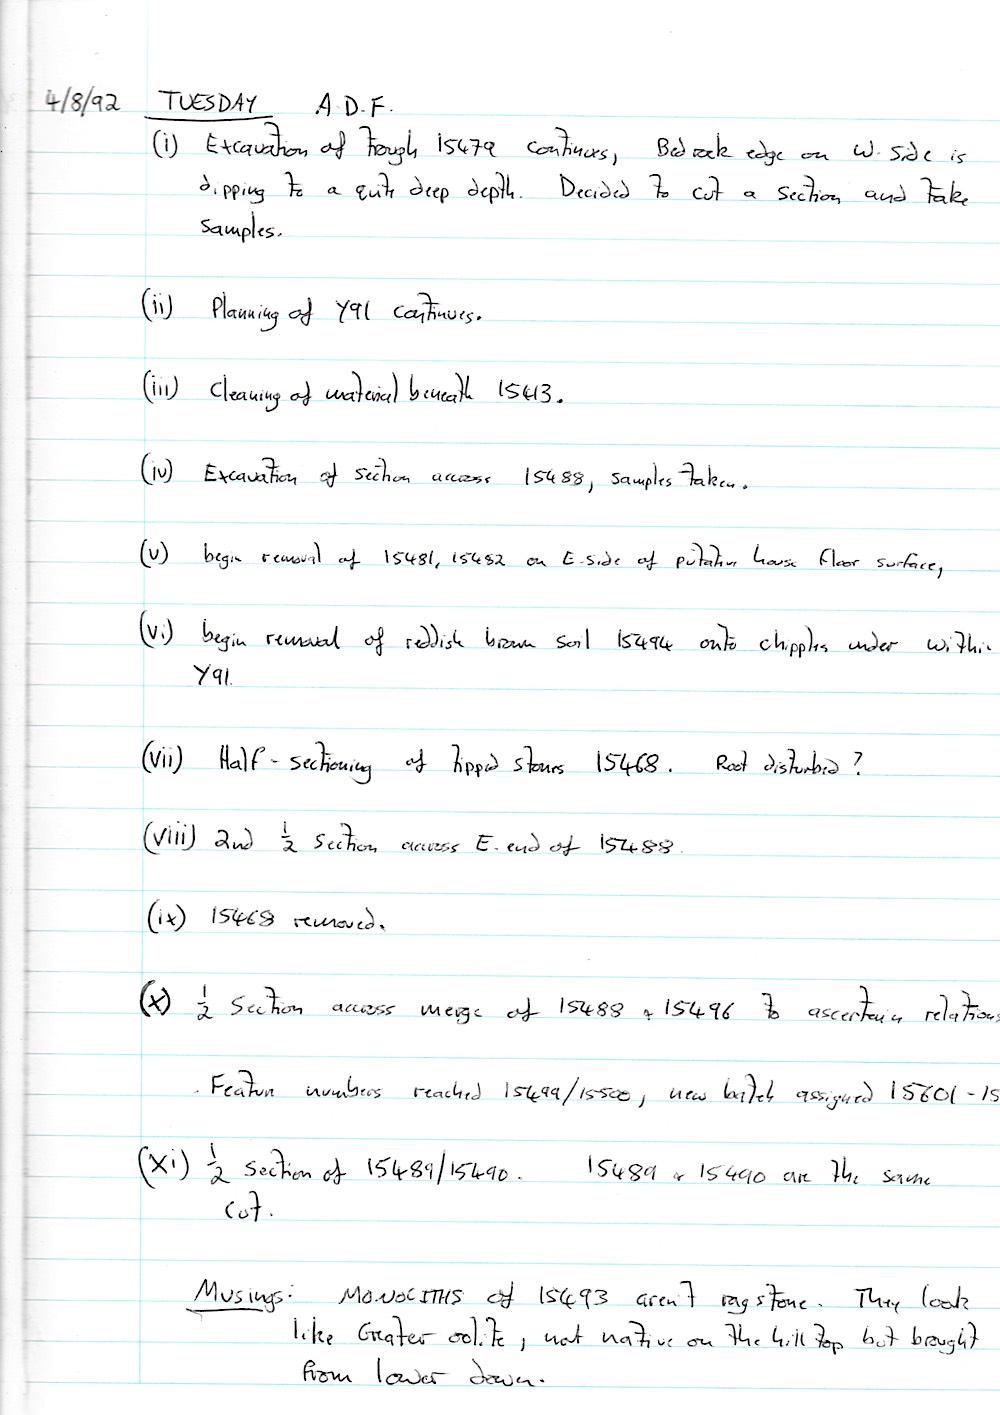 4/8/92 TUESDAY A.D.F.
(i) Excavation of trough 15479 continues, Bedrock edge on W. side is
dipping to a quite deep depth. Decided to cut a section and take
samples.
(ii) Planning of Y91 continues.
(iii) Cleaning of material beneath 15413.
(iv) Excavation of section across 15488, samples taken.
(v) begin removal of 15481, 15482 on E-side of putative house floor surface,
(vi) begin removal of reddish brown soil 15494 onto chipples under within
Y91.
(vii) Half-sectioning of tipped stones 15468. Root disturbed?
(viii) 2nd ½ section across E. end of 15488.
(ix) 15468 removed.
(x) ½ section across merge of 15488 + 15496 to ascertain relations
. Feature numbers reached 15499/15500, new batch assigned 15601-15
(xi) ½ section of 15489/15490. 15489 + 15490 are the same
cut.
Musings: MONOLITHS of 15493 aren't ragstone. They look
like Greater oolite, not native on the hill top but brought
from lower down.